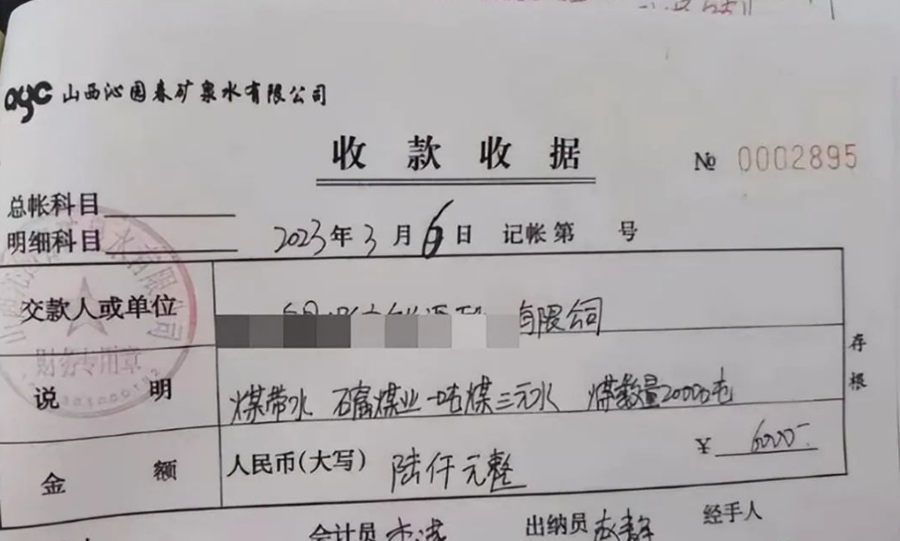 山西沁园春矿泉水有限公司
收款收据
№ 0002895
总帐科目
明细科目
2023年3月6日 记帐第 号
交款人或单位 有限公司
说明 煤带水 石富煤业一吨煤三元水 煤数量20000吨
存根
金额 人民币(大写) 陆仟元整 ¥ 6000-
会计员 出纳员 经手人
财务专用章